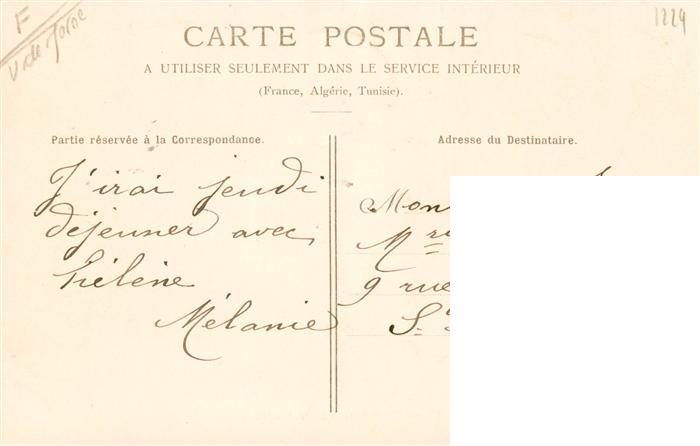 F
1224
CARTE POSTALE
A UTILISER SEULEMENT DANS LE SERVICE INTÉRIEUR
(France, Algérie, Tunisie).
Partie réservée à la Correspondance.
J'irai jeudi
déjeuner avec
Hélène
Mélanie
Adresse du Destinataire.
Mon
M
9 rue
S